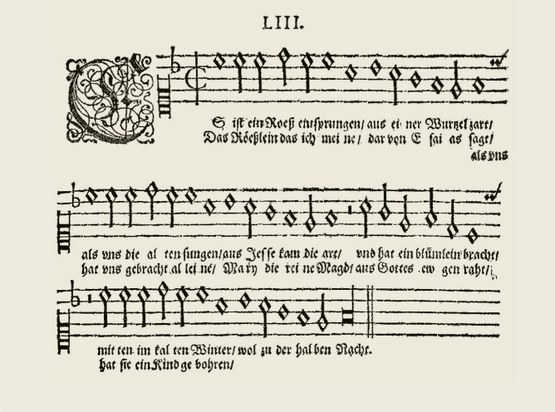 LIII.
ES ist ein Roeß entsprungen/ aus ei ner Wurtzel zart/
Das Röeßlein das ich mei ne/ dar von E sai as sagt/
als vns
als vns die al ten sungen/ aus Jesse kam die art/ vnd hat ein blümlein bracht/
hat vns gebracht al lei ne/ Mary die rei ne Magd/ aus Gottes ew gen raht/
mit ten im kal ten Winter/ wol zu der hal ben Nacht.
hat sie ein Kind ge bohren/